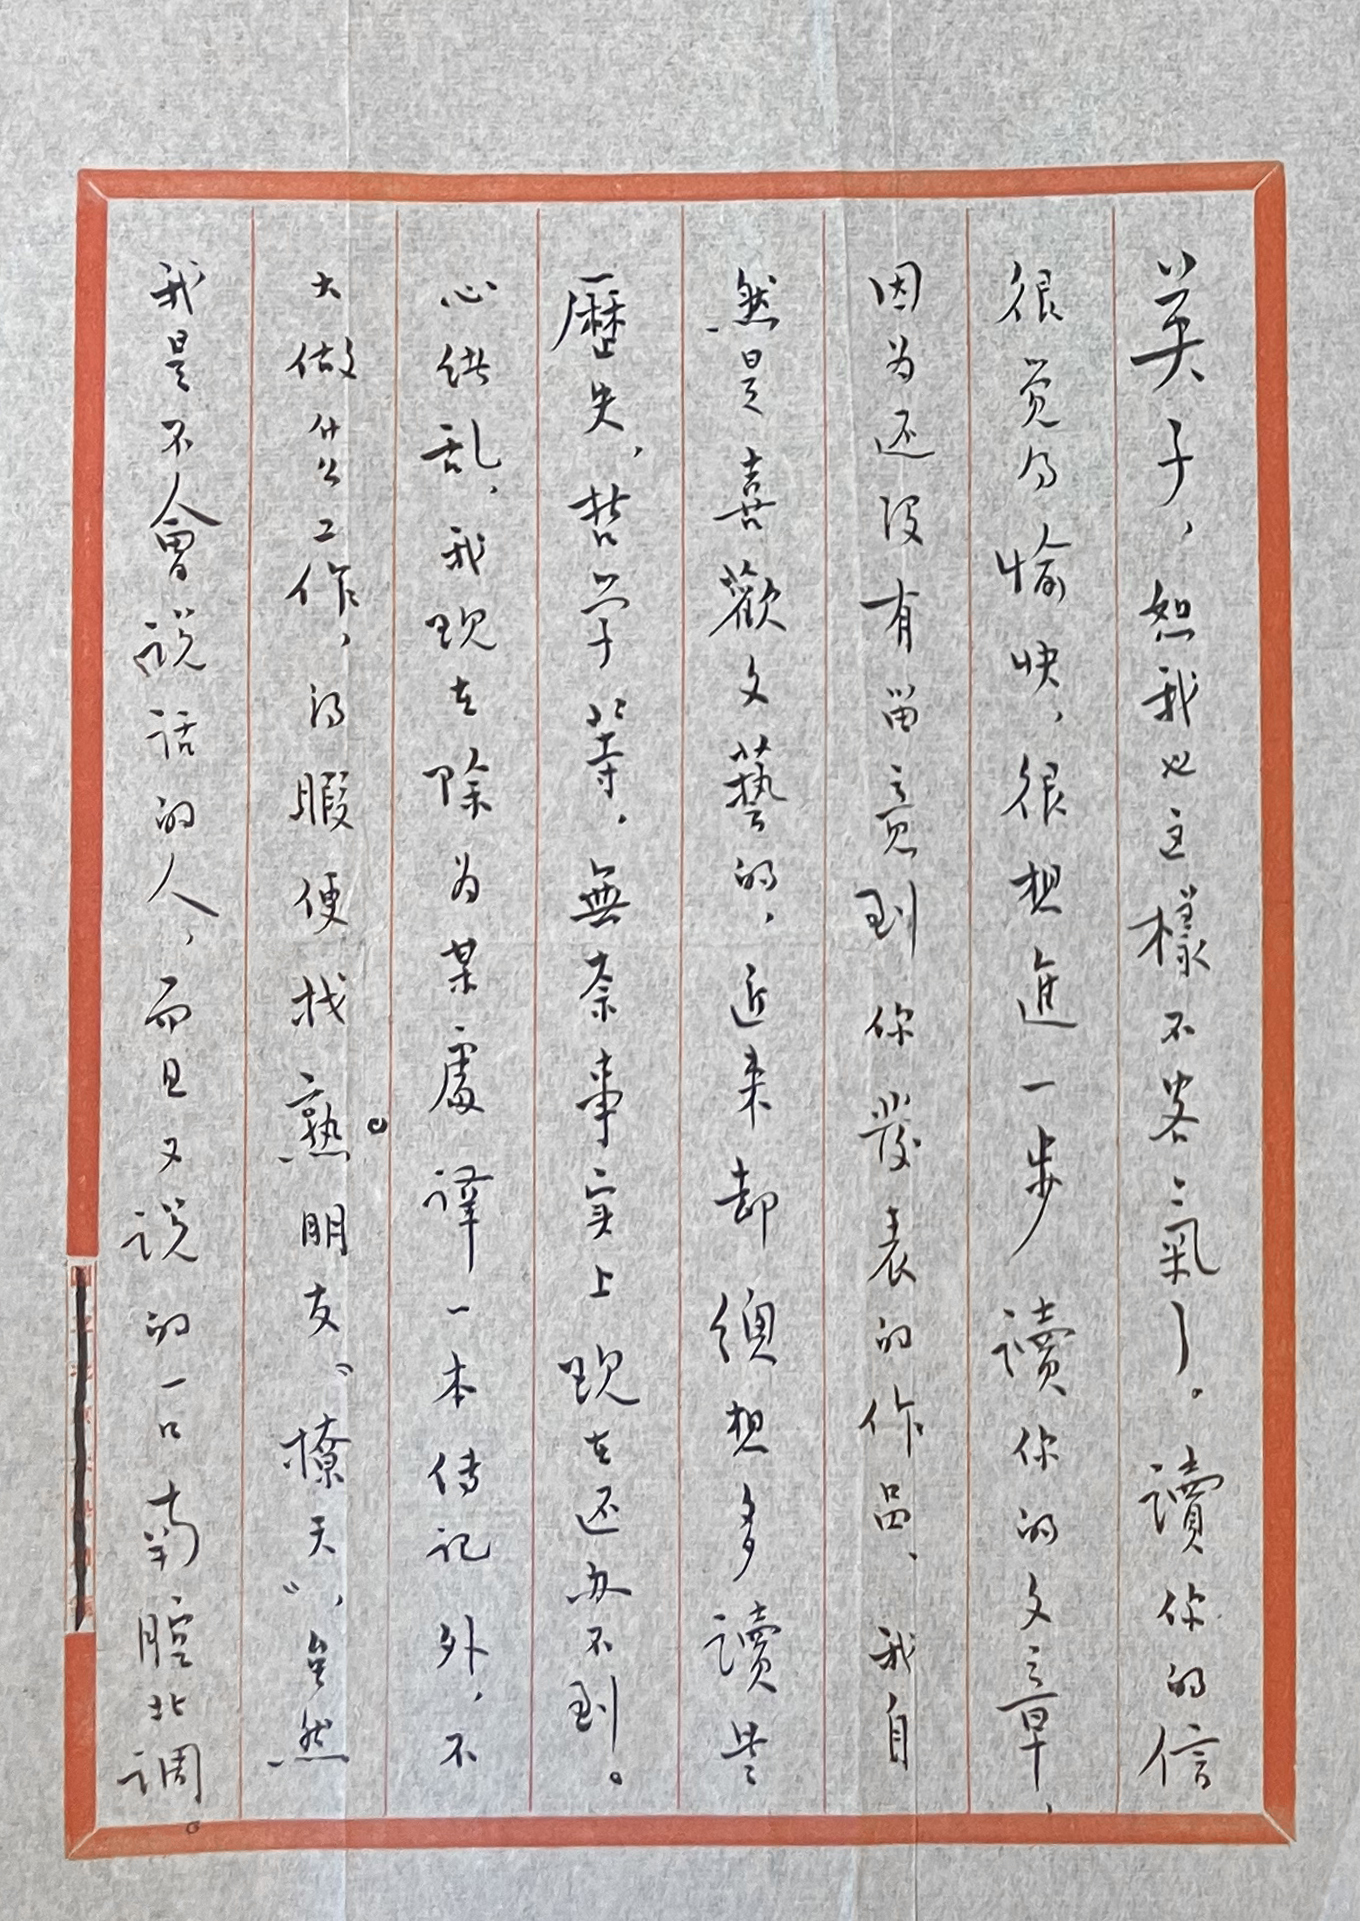 英子，恕我也这樣不客氣了。讀你的信
很觉为愉快，很想進一步讀你的文章，
因为还没有留意到你發表的作品、我自
然是喜歡文藝的，近来却須想多讀些
歷史，哲学等，無奈事实上现在还办不到。
心绪乱，我现在除为某處譯一本传记外，不
大做什么工作，得暇便找熟朋友“撩天”，虽然
我是不會说话的人，而且又说的一口南腔北调。